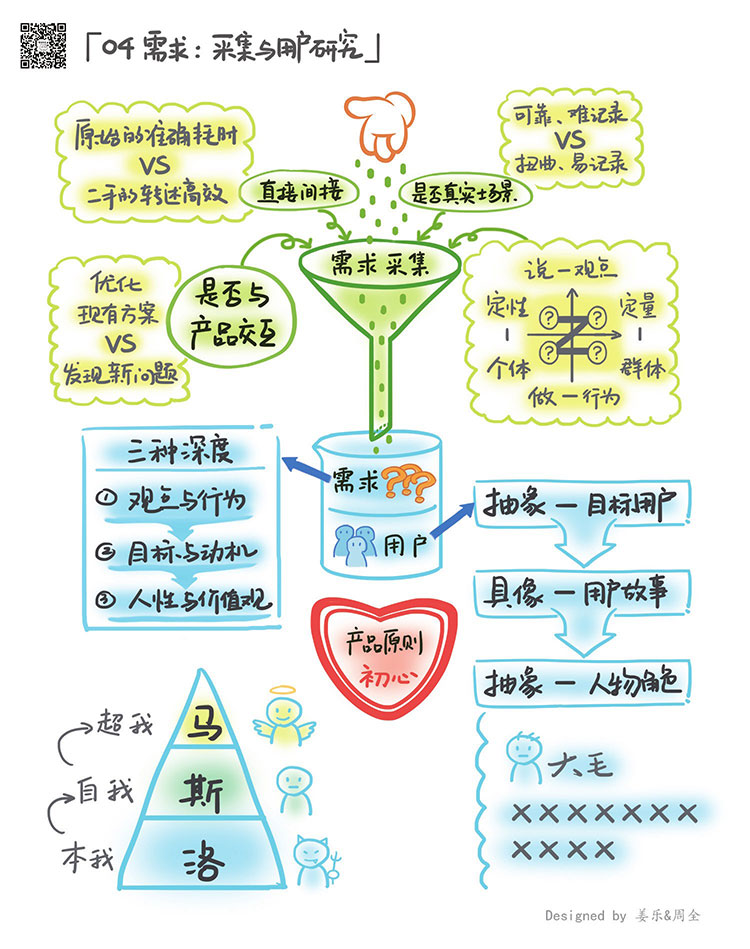 「04 需求：采集与用户研究」
原始的准确耗时
VS
二手的转述高效
可靠、难记录
VS
扭曲、易记录
直接间接
是否真实场景
需求采集
优化
现有方案
VS
发现新问题
是否与
产品交互
说—观点
定性
|
个体
?
?
?
?
定量
|
群体
做—行为
三种深度
① 观点与行为
② 目标与动机
③ 人性与价值观
需求???
用户
抽象—目标用户
具像—用户故事
抽象—人物角色
产品原则
初心
超我
马
自我
斯
本我
洛
大毛
×××××××
××××
Designed by 姜乐&周全